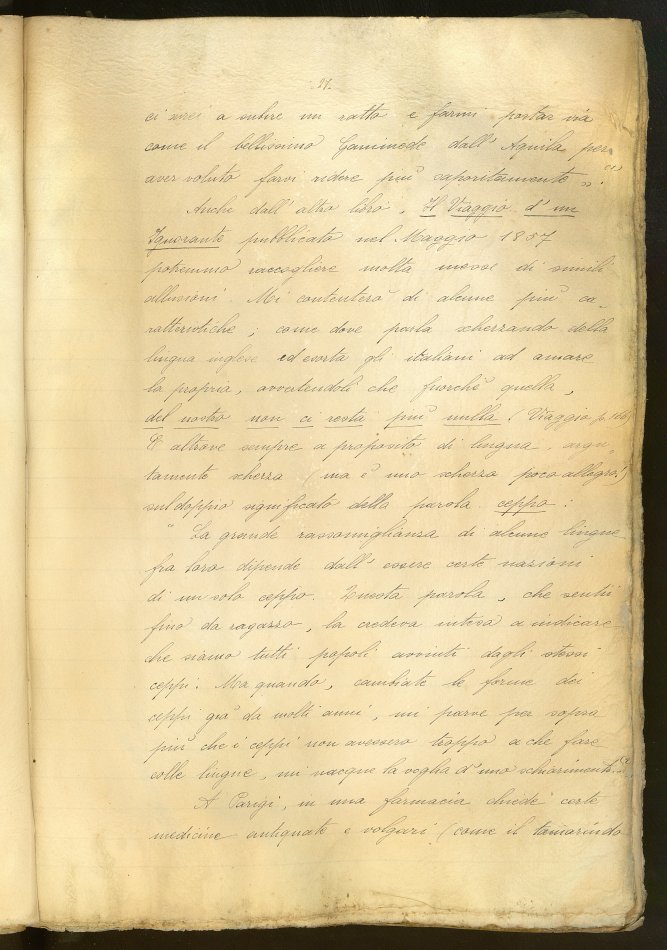 27.
ci avrei a subire un ratto e farmi portar via
come il bellissimo Ganimede dall' Aquila per
aver voluto farvi ridere più saporitamente „. (1)
Anche dall' altro libro, Il Viaggio d' un
Ignorante pubblicato nel Maggio 1857
potremmo raccogliere molta messe di simili
allusioni. Mi contenterò di alcune più ca-
ratteristiche; come dove parla scherzando della
lingua inglese ed esorta gli italiani ad amare
la propria, avvertendoli che fuorchè quella,
del nostro non ci resta più nulla (Viaggio p.
E altrove sempre a proposito di lingua, argu-
tamente scherza (ma è uno scherzo poco allegro!)
sul doppio significato della parola ceppo:
"La grande rassomiglianza di alcune lingue
fra loro dipende dall' essere certe nazioni
di un solo ceppo. Questa parola, che sentii
fino da ragazzo, la credeva intesa a indicare
che siamo tutti popoli avvinti dagli stessi
ceppi. Ma quando, cambiate le forme dei
ceppi già da molti anni, mi parve per sopra
più che i ceppi non avessero troppo a che fare
colle lingue, mi nacque la voglia d' uno schiarimento.
A Parigi, in una farmacia chiedè certe
medicine antiquate e volgari (come il tamarindo